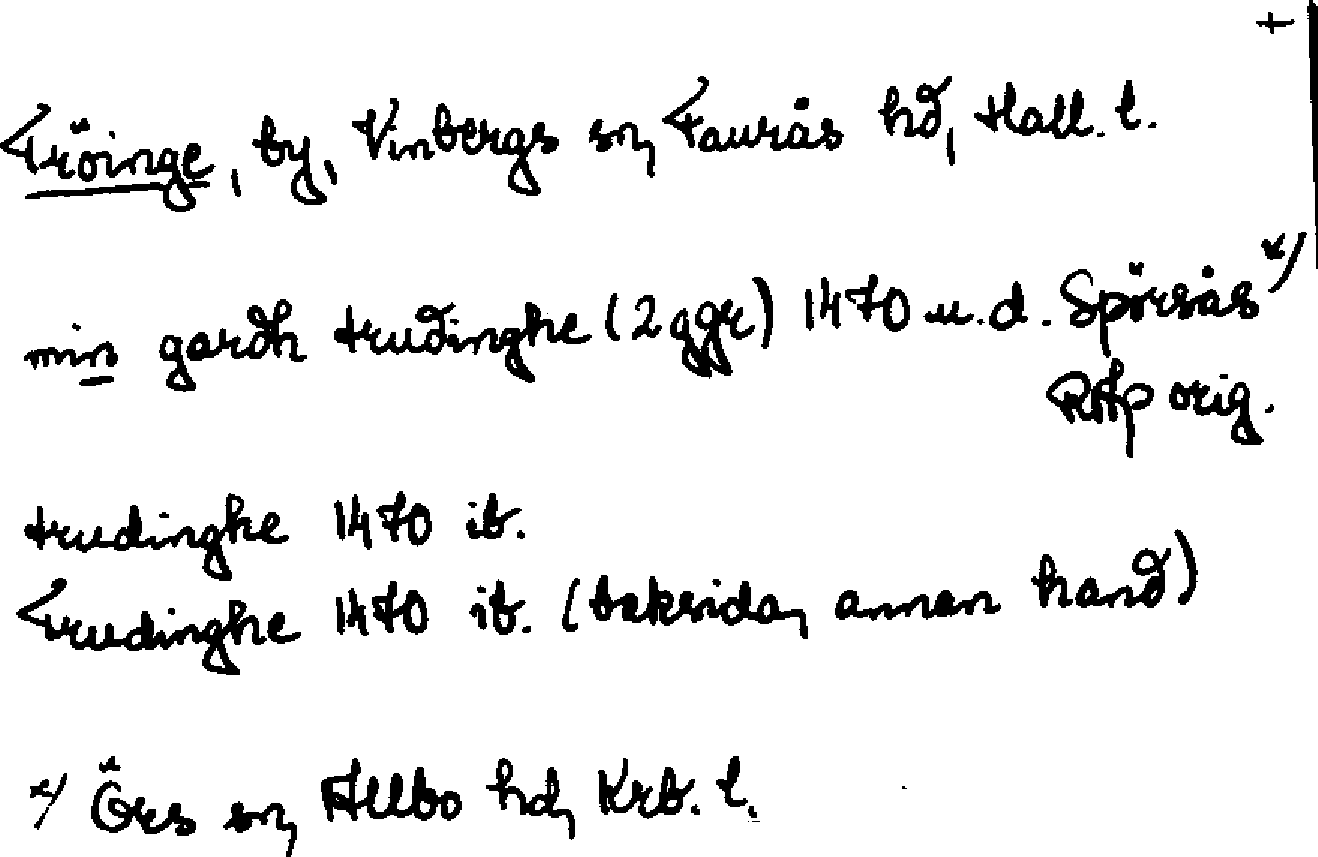 +
Tröinge, by, Vinbergs sn, Faurås hd, Hall. l.
min gardh trudinghe (2 ggr) 1470 u.d. Spörsås x)
RAp orig.
trudinghe 1470 ib.
Trudinghe 1470 ib. (baksida, annan hand)
x) Örs sn, Allbo hd, Krb. l.